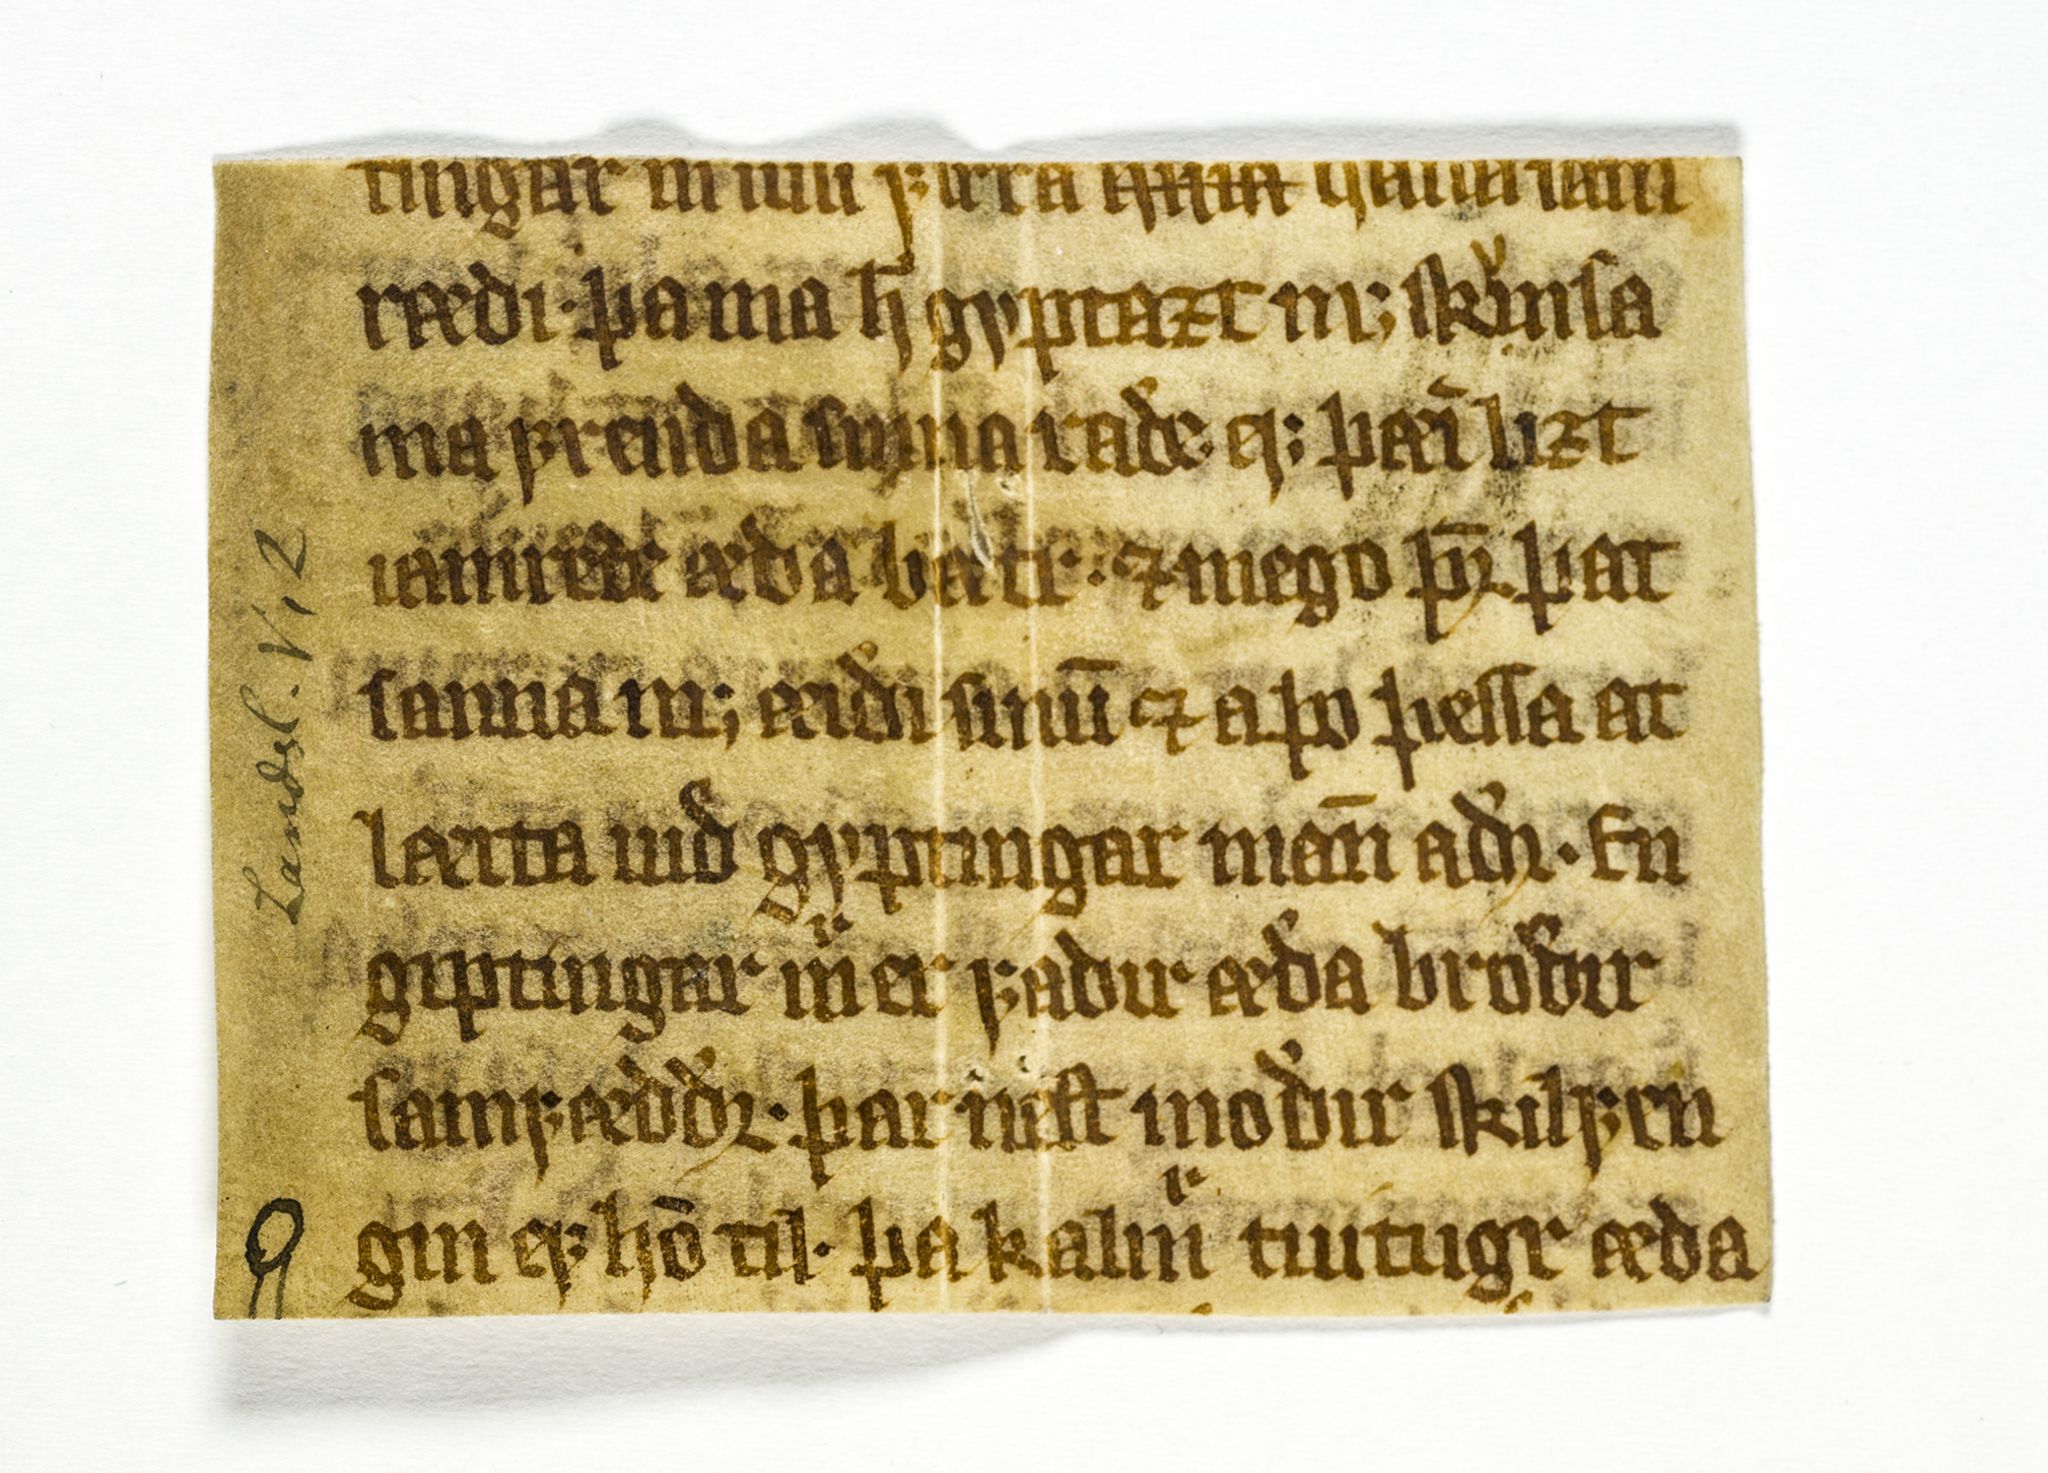 tingar m
rædi · þa ma h̵ gyptazt m; skẏnsa
ma frenda sinna rade · ef þæı̄ lizt
iamrede æda bætr · ⁊ mego þr̄ þat
sanna m; æıdı sinū ⁊ a þo þessa at
læita uıð gyptingar man̄ adꝛ · En
giptingar m̄ er fadir æda brodir
samfæddꝛ · þar nest modir skilfen
gin ef hō til · þa kalm̄ tuitugr æda
Landsl. V, 2
9